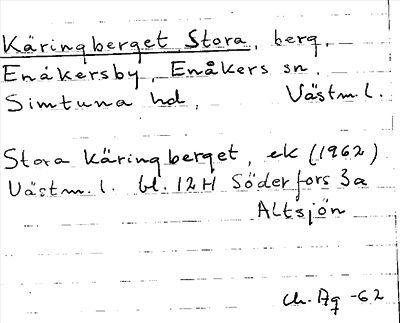 Käringberget Stora, berg,
Enåkersby, Enåkers sn.
Simtuna hd, Västm.l.
Stora Käringberget, ek (1962)
Västm.l. bl. 12H Söderfors 3a
Altsjön
-62